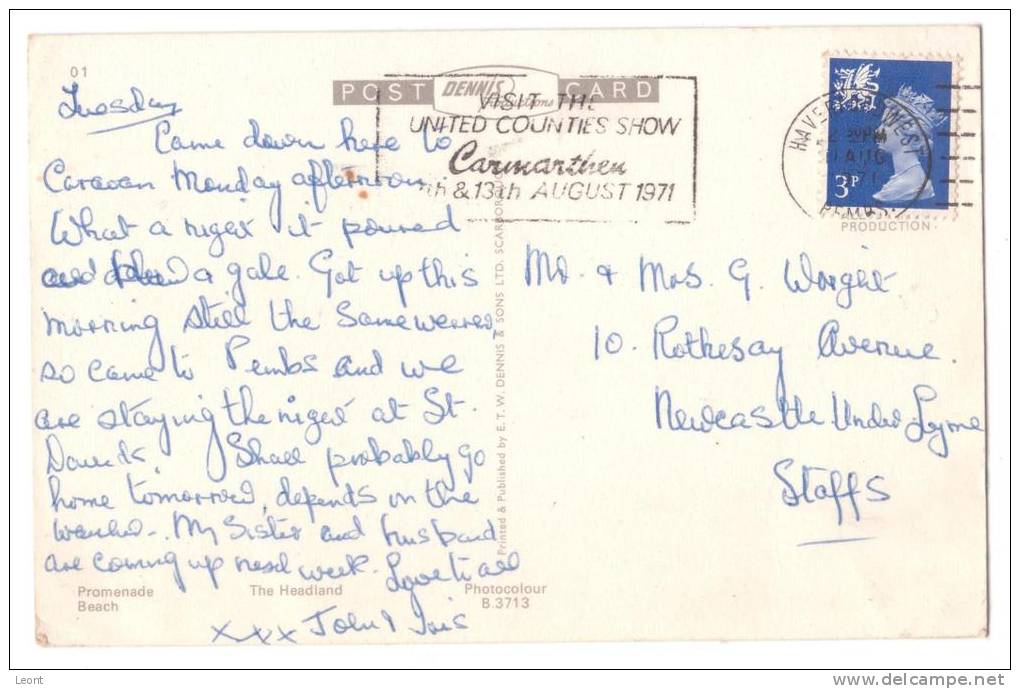 01
POST DENNIS Productions CARD
VISIT THE
UNITED COUNTIES SHOW
Carmarthen
th & 13th AUGUST 1971
HAVERFORDWEST
PM
AUG
PEMBS.
3P
PRODUCTION
Tuesday
Came down here to
Caravan Monday afternoon
What a night it poured
and a gale. Got up this
morning still the same
so came to Pembs and we
are staying the night at St.
Davids. Shall probably go
home tomorrow, depends on the
weather. My Sister and husband
are coming up next week. Love to all
xxx John & Iris
Mr. & Mrs G. Wright
10. Rothesay Avenue.
Newcastle Under Lyme
Staffs
Printed & Published by E. T. W. DENNIS & SONS LTD. SCARBOROUGH
Promenade The Headland Photocolour
Beach B.3713
Leont
www.delcampe.net